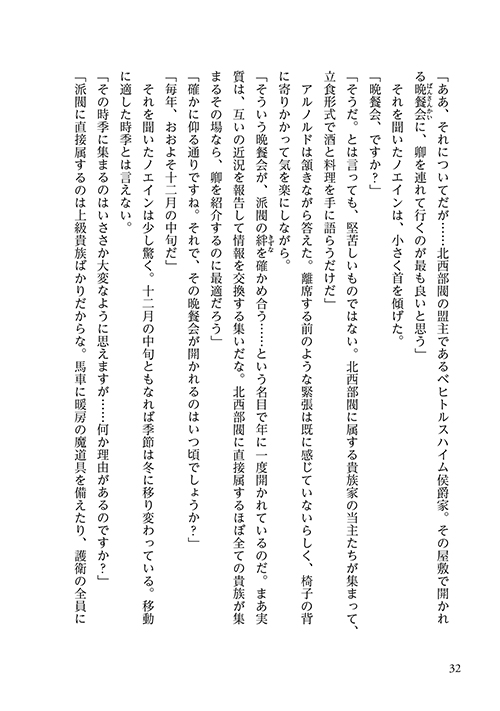 「ああ、それについてだが……北西部閥の盟主であるベヒトルスハイム侯爵家。その屋敷で開かれ
る晩餐会に、卿を連れて行くのが最も良いと思う」
ばんさんかい
それを聞いたノエインは、小さく首を傾げた。
「晩餐会、ですか？」
「そうだ。とは言っても、堅苦しいものではない。北西部閥に属する貴族家の当主たちが集まって、
立食形式で酒と料理を手に語らうだけだ」
アルノルドは頷きながら答えた。離席する前のような緊張は既に感じていないらしく、椅子の背
に寄りかかって気を楽にしながら。
「そういう晩餐会が、派閥の絆を確かめ合う……という名目で年に一度開かれているのだ。まあ実
きずな
質は、互いの近況を報告して情報を交換する集いだな。北西部閥に直接属するほぼ全ての貴族が集
まるその場なら、卿を紹介するのに最適だろう」
「確かに仰る通りですね。それで、その晩餐会が開かれるのはいつ頃でしょうか？」
「毎年、おおよそ十二月の中旬だ」
それを聞いたノエインは少し驚く。十二月の中旬ともなれば季節は冬に移り変わっている。移動
に適した時季とは言えない。
「その時季に集まるのはいささか大変なように思えますが……何か理由があるのですか？」
「派閥に直接属するのは上級貴族ばかりだからな。馬車に暖房の魔道具を備えたり、護衛の全員に
32